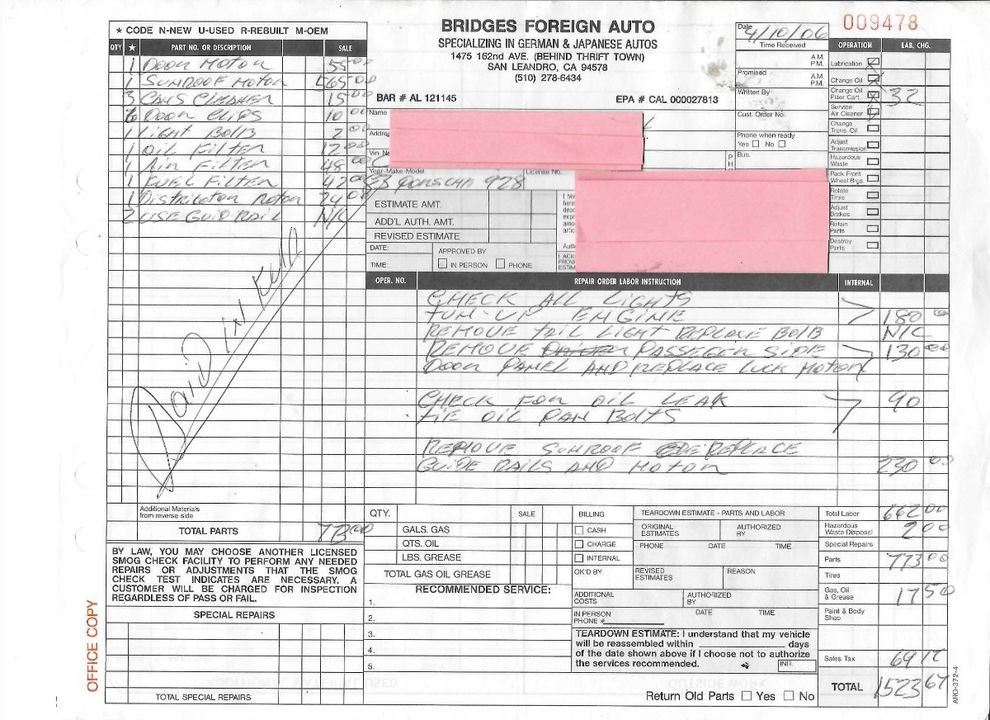 ★ CODE N-NEW U-USED R-REBUILT M-OEM
QTY ★ PART NO. OR DESCRIPTION SALE
1 DOOR MOTOR 55 00
1 SUNROOF MOTOR 565 00
3 CANS CLEANER 15 00
6 DOOR CLIPS 10 00
1 LIGHT BOLB 2 00
1 OIL FILTER 12 00
1 AIR FILTER 48 00
1 FUEL FILTER 42 00
1 DISTRIBUTOR ROTOR 24 00
2 USE GUID RAIL N/C
PAID IN FULL
Additional Materials
from reverse side
TOTAL PARTS 773 00
BY LAW, YOU MAY CHOOSE ANOTHER LICENSED
SMOG CHECK FACILITY TO PERFORM ANY NEEDED
REPAIRS OR ADJUSTMENTS THAT THE SMOG
CHECK TEST INDICATES ARE NECESSARY. A
CUSTOMER WILL BE CHARGED FOR INSPECTION
REGARDLESS OF PASS OR FAIL.
SPECIAL REPAIRS
TOTAL SPECIAL REPAIRS
OFFICE COPY
BRIDGES FOREIGN AUTO
SPECIALIZING IN GERMAN & JAPANESE AUTOS
1475 162nd AVE. (BEHIND THRIFT TOWN)
SAN LEANDRO, CA 94578
(510) 278-6434
BAR # AL 121145 EPA # CAL 000027813
Name
Addre
Vin N
Year-Make-Model License No.
83 PORSCHE 928
ESTIMATE AMT.
ADD'L AUTH. AMT.
REVISED ESTIMATE
DATE: APPROVED BY
TIME: IN PERSON PHONE
Date 4/10/06
Time Received
A.M.
P.M.
Promised A.M.
P.M.
Written By
Cust. Order No.
Phone when ready
Yes No
Bus.
009478
OPERATION LAB. CHG.
Lubrication
Change Oil
Change Oil
Filter Cart. 32
Service
Air Cleaner
Change
Trans. Oil
Adjust
Transmission
Hazardous
Waste
Pack Front
Wheel Brgs.
Rotate
Tires
Adjust
Brakes
Retain
Parts
Destroy
Parts
OPER. NO. REPAIR ORDER LABOR INSTRUCTION INTERNAL
CHECK ALL LIGHTS
TUN-UP ENGINE 180 00
REMOVE TAIL LIGHT REPLACE BOLB N/C
REMOVE PASSEGER SIDE 130 00
DOOR PANEL AND REPLACE LOCK MOTOR
CHECK FOR OIL LEAK 90
TIE OIL PAN BOLTS
REMOVE SUNROOF REPLACE
GUIDE RAILS AND MOTOR 230 00
QTY. SALE
GALS. GAS
QTS. OIL
LBS. GREASE
TOTAL GAS OIL GREASE
RECOMMENDED SERVICE:
1.
2.
3.
4.
5.
BILLING
CASH
CHARGE
INTERNAL
OK'D BY
TEARDOWN ESTIMATE - PARTS AND LABOR
ORIGINAL ESTIMATES AUTHORIZED BY
PHONE DATE TIME
REVISED ESTIMATES REASON
ADDITIONAL COSTS AUTHORIZED BY
IN PERSON DATE TIME
PHONE #
TEARDOWN ESTIMATE: I understand that my vehicle
will be reassembled within days
of the date shown above if I choose not to authorize
the services recommended. INIT.
Return Old Parts Yes No
Total Labor 662 00
Hazardous
Waste Disposal 2 00
Special Repairs
Parts 773 00
Tires
Gas, Oil
& Grease 17 50
Paint & Body
Shop
Sales Tax 69 17
TOTAL 1523 67
ARO-372-4